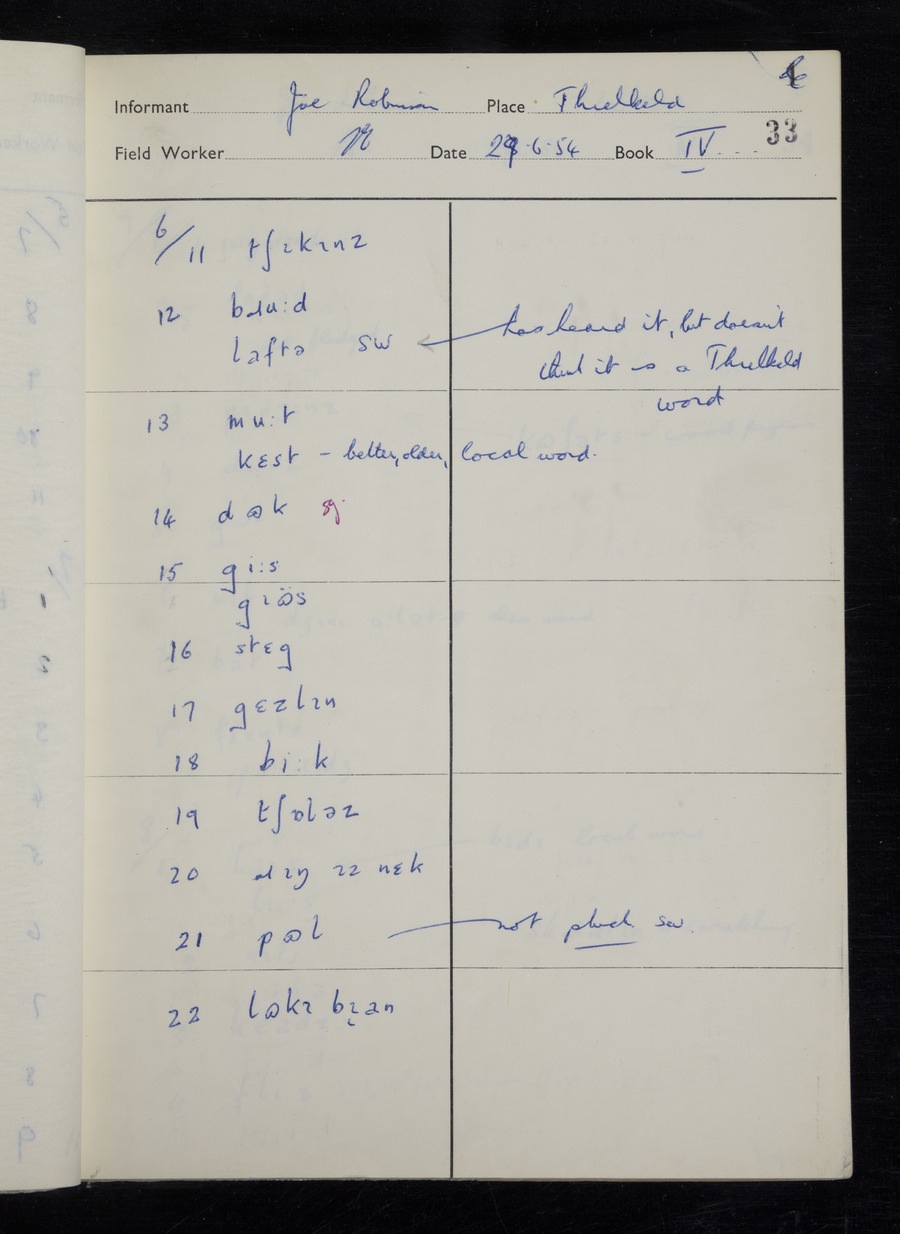 Informant Joe Robinson Place Threlkeld
33
Field Worker Date 29·6·54 Book IV
6/11 tʃɪkɪnz
12 bɹu:d
laftə sw has heard it, but doesn't
think it is a Threlkeld
word
13 mu:t
kɛst – better, older, local word.
14 dɷk sg.
15 gi:s
gɪɷ̈s
16 stɛg
17 gɛzlɪn
18 bi:k
19 tʃɒləz
20 ɹɪŋ ɪz nɛk
21 pɷl not pluck sw.
22 lɷkɪ bɪ̯an